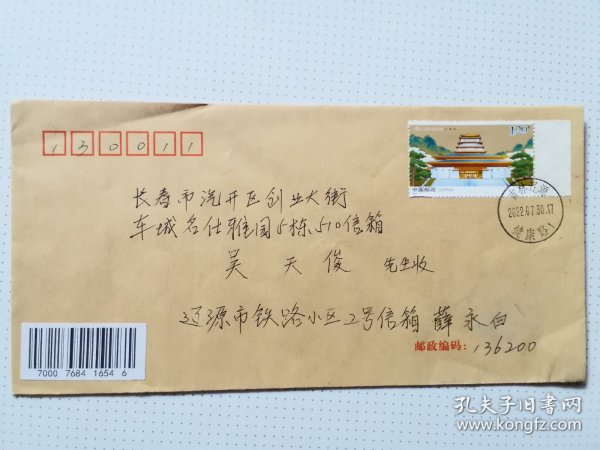 130011
1.20元
中国邮政 CHINA
2022.07.30.17
健康路
长春市汽开区创业大街
车城名仕雅园5栋510信箱
吴天俊 先生收
辽源市铁路小区2号信箱 薛永白
邮政编码：136200
7000 7684 1654 6
孔夫子旧书网
www.kongfz.com